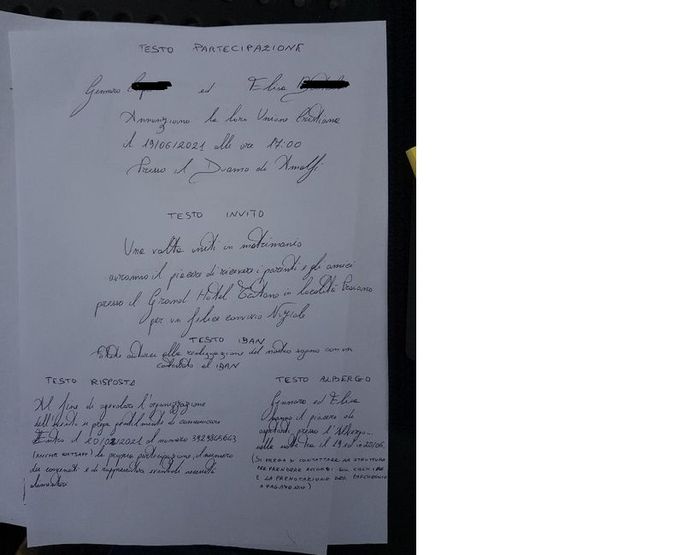 TESTO PARTECIPAZIONE
Gennaro ed Elisa
Annunziano la loro Unione Cristiana
il 19/06/2021 alle ore 17:00
Presso il Duomo di Amalfi
TESTO INVITO
Una volta uniti in matrimonio
avranno il piacere di ricevere i parenti e gli amici
presso il Grand Hotel Tritone in località Praiano
per un felice convivio Nuziale
TESTO IBAN
alla realizzazione del nostro sogno con un
contributo al IBAN
TESTO RISPOSTA
TESTO ALBERGO
Al fine di agevolare l'organizzazione
dell'evento si prega gentilmente di comunicare
Entro il al numero
(ANCHE WHATSAPP) la propria partecipazione, il numero
dei componenti e di rappresentare eventuali necessità
alimentari
Gennaro ed Elisa
hanno il piacere di
ospitarvi presso l'Albergo
nella notte tra il 19 ed il 20/06.
(SI PREGA DI CONTATTARE LA STRUTTURA
PER PRENDERE ACCORDI SUL
E LA PRENOTAZIONE DEL PARCHEGGIO
A PAGAMENTO)